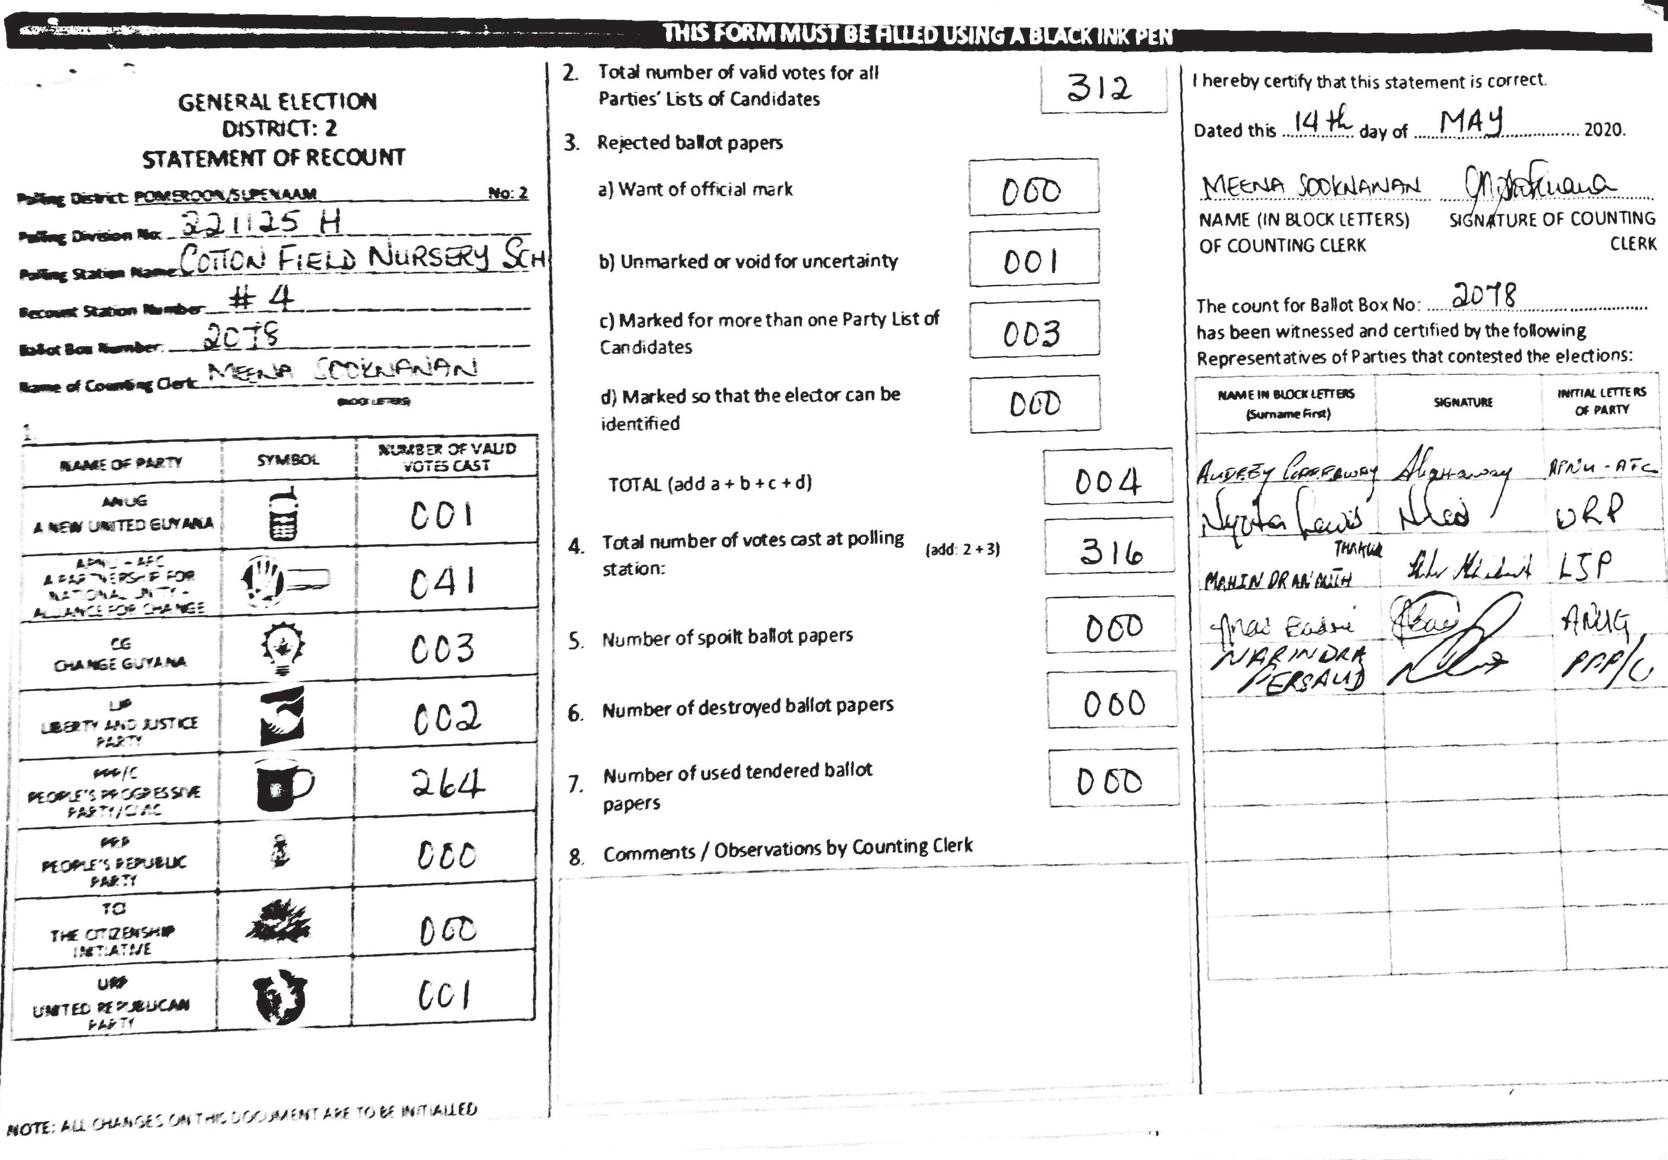 THIS FORM MUST BE FILLED USING A BLACK INK PEN
GENERAL ELECTION
DISTRICT: 2
STATEMENT OF RECOUNT
Polling District: POMEROON/SUPENAAM No: 2
Polling Division No: 221125 H
Polling Station Name: COTTON FIELD NURSERY SCH
Recount Station Number: # 4
Ballot Box Number: 2078
Name of Counting Clerk: MEENA SOOKNANAN
(BLOCK LETTERS)
1.
NAME OF PARTY SYMBOL NUMBER OF VALID
VOTES CAST
ANUG
A NEW UNITED GUYANA
001
APNU - AFC
A PARTNERSHIP FOR
NATIONAL UNITY -
ALLIANCE FOR CHANGE
041
CG
CHANGE GUYANA
003
LJP
LIBERTY AND JUSTICE
PARTY
002
PPP/C
PEOPLE'S PROGRESSIVE
PARTY/CIVIC
264
PRP
PEOPLE'S REPUBLIC
PARTY
000
TCI
THE CITIZENSHIP
INITIATIVE
000
URP
UNITED REPUBLICAN
PARTY
001
NOTE: ALL CHANGES ON THIS DOCUMENT ARE TO BE INITIALLED
2. Total number of valid votes for all
Parties' Lists of Candidates
312
3. Rejected ballot papers
a) Want of official mark 000
b) Unmarked or void for uncertainty 001
c) Marked for more than one Party List of
Candidates
003
d) Marked so that the elector can be
identified
000
TOTAL (add a + b + c + d) 004
4. Total number of votes cast at polling
station:
(add: 2 + 3) 316
5. Number of spoilt ballot papers 000
6. Number of destroyed ballot papers 000
7. Number of used tendered ballot
papers
000
8. Comments / Observations by Counting Clerk
I hereby certify that this statement is correct.
Dated this 14th day of MAY 2020.
MEENA SOOKNANAN
NAME (IN BLOCK LETTERS) SIGNATURE OF COUNTING
OF COUNTING CLERK CLERK
The count for Ballot Box No: 2078
has been witnessed and certified by the following
Representatives of Parties that contested the elections:
NAME IN BLOCK LETTERS
(Surname First)
SIGNATURE
INITIAL LETTERS
OF PARTY
APNU - AFC
Lewis URP
THAKUR
MAHINDRANAUTH LJP
ANUG
NARINDRA
PERSAUD PPP/C